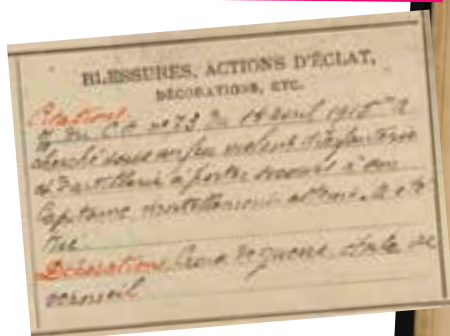 BLESSURES, ACTIONS D'ÉCLAT,
DÉCORATIONS, ETC.
Citations
du C.A. nº 73 du 18 avril 1915 "A
cherché sous un feu violent d'infanterie
et d'artillerie à porter secours à son
Capitaine mortellement atteint. A été
tué.
Décorations. Croix de guerre, étoile de
vermeil